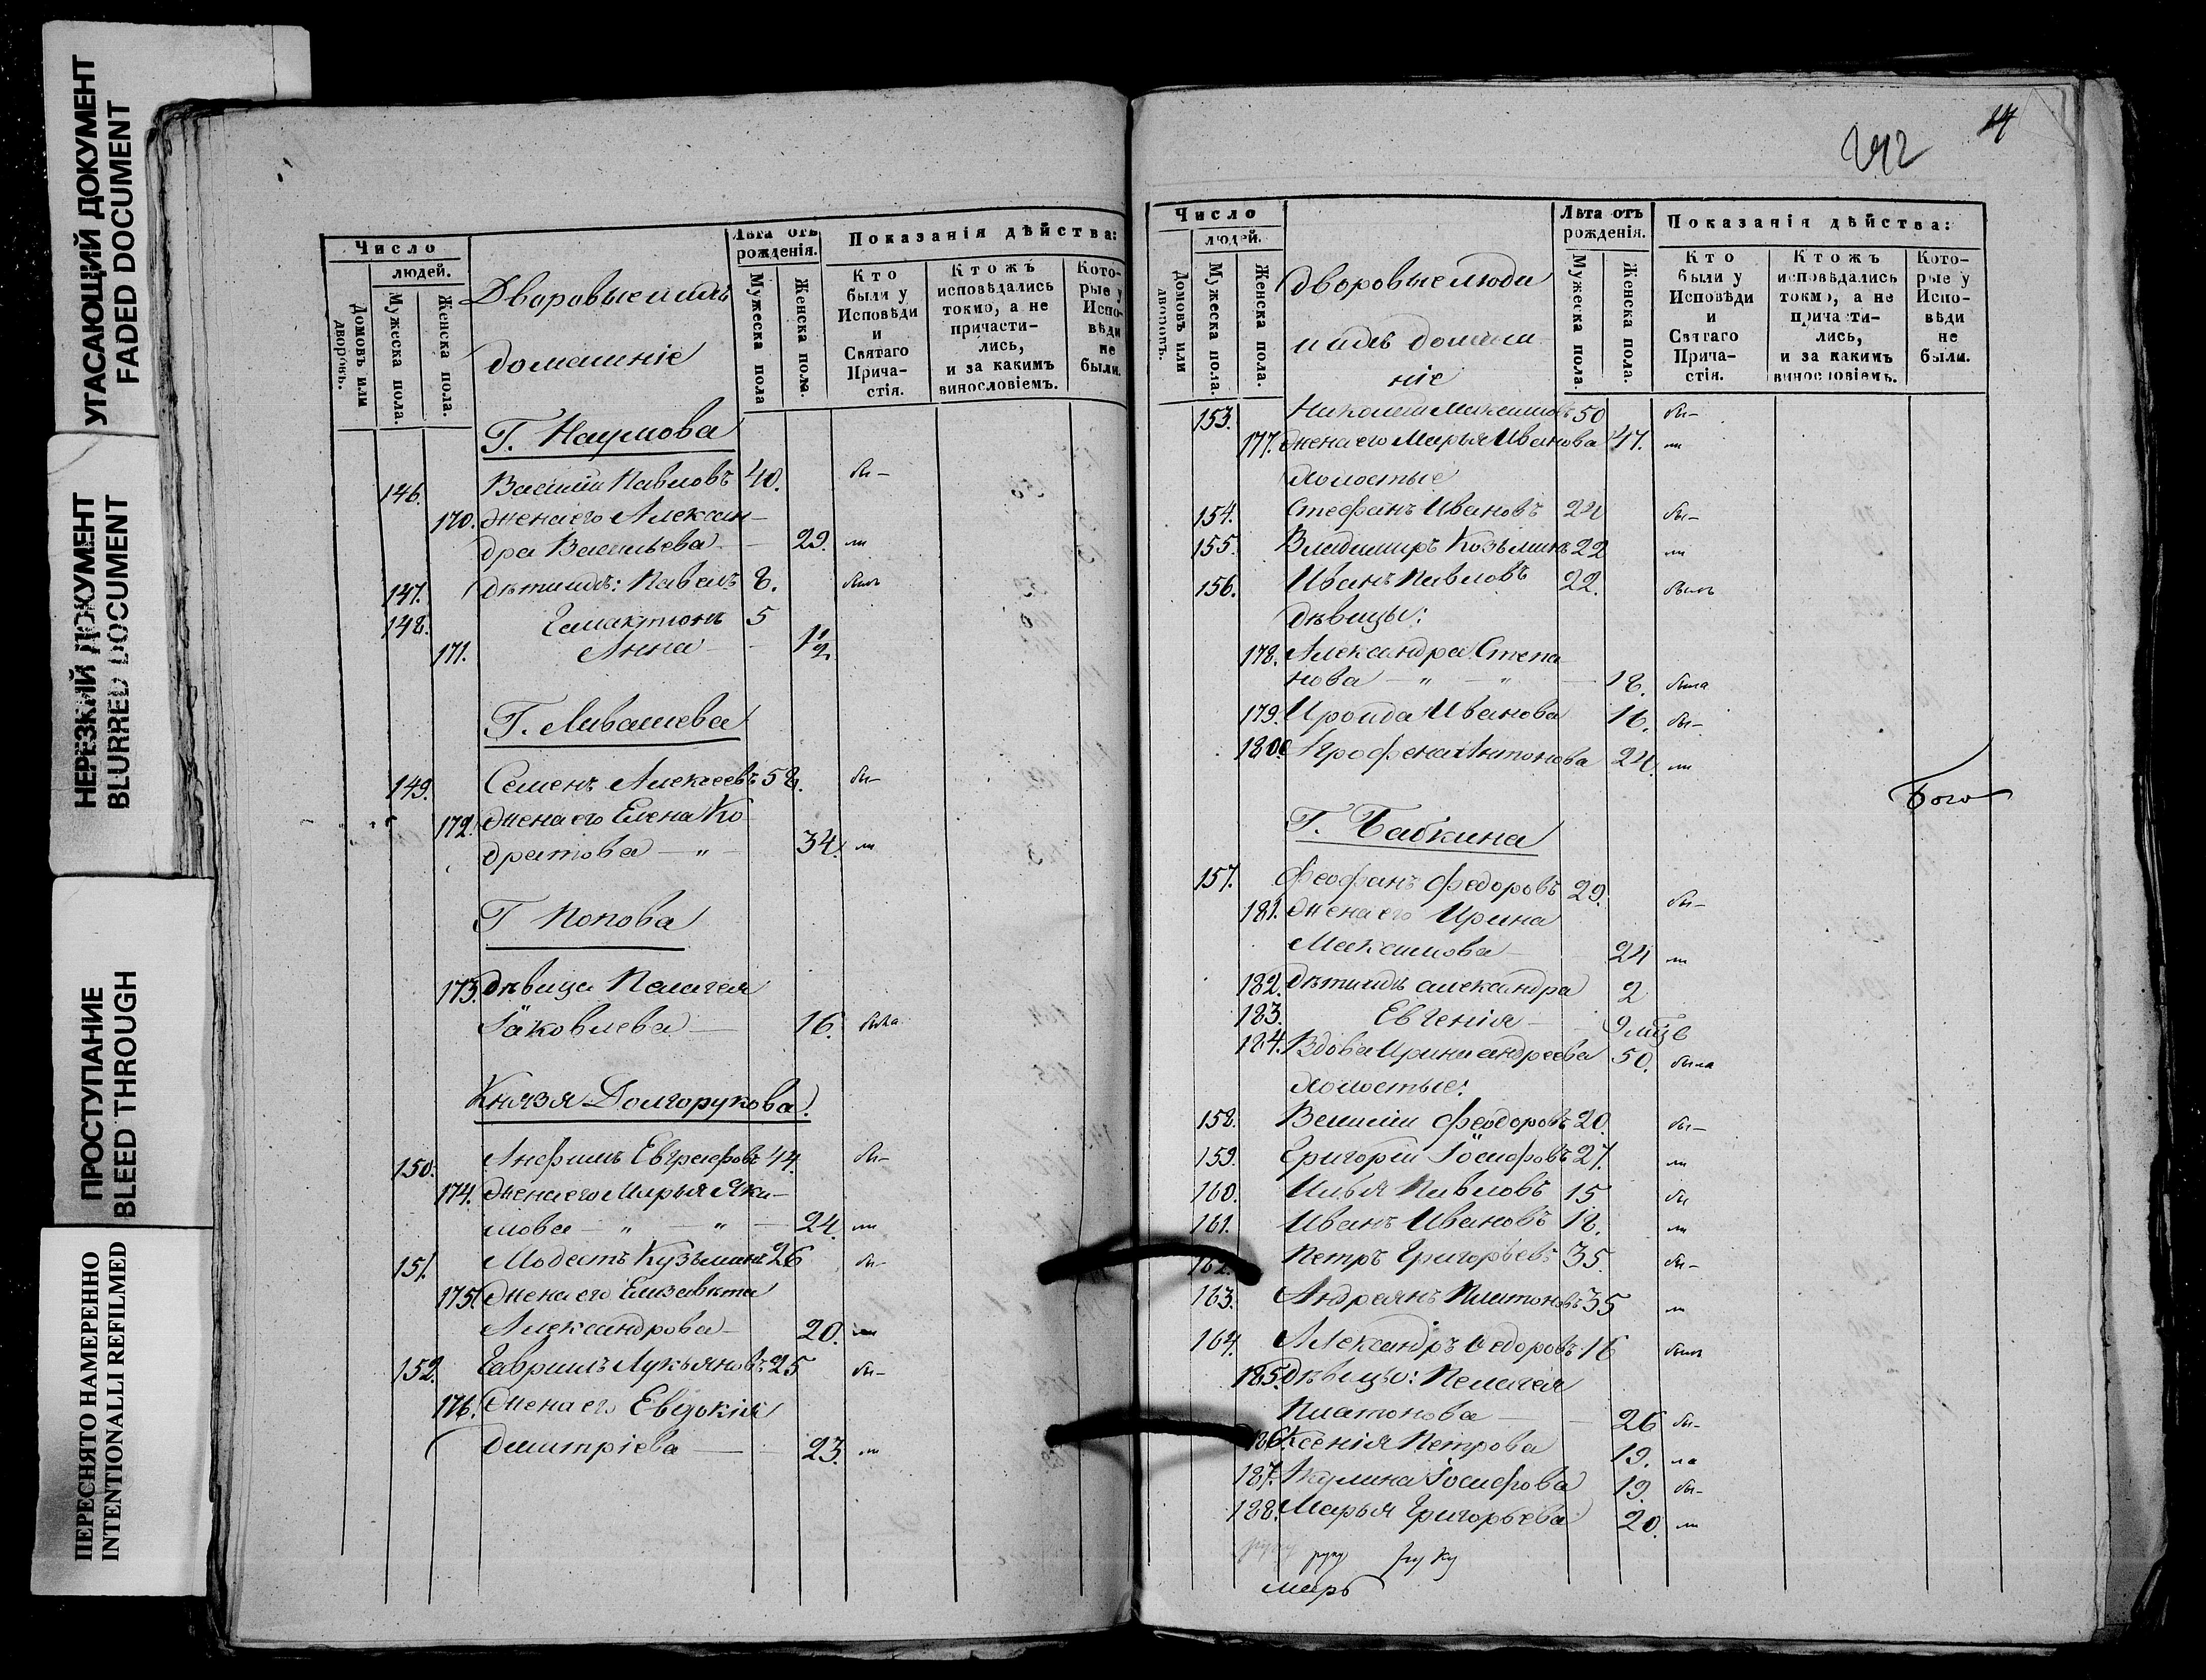 УГАСАЮЩИЙ ДОКУМЕНТ
FADED DOCUMENT
НЕРЕЗКИЙ ДОКУМЕНТ
BLURRED DOCUMENT
ПРОСТУПАНИЕ
BLEED THROUGH
ПЕРЕСНЯТО НАМЕРЕННО
INTENTIONALLI REFILMED
Число
людей.
Домовъ или дворовъ.
Мужеска пола.
Женска пола.
Дворовые и ихъ
домашніе
Лѣта отъ рожденія.
Мужеска пола
Женска пола.
Показанія дѣйства:
Кто были у Исповѣди и Святаго Прича-стія.
Ктожъ исповѣдались токмо, а не причасти-лись, и за какимъ винословіемъ.
Кото-рые у Испо-вѣди не были.
Г. Наумова
146. Василій Павловъ 40. бы-
170. жена его Алексан-
дра Васильева - 29. ли
147. дѣти ихъ: Павелъ 8. былъ
148. Галактіонъ 5
171. Анна - 1/2
Г. Ливашева
149. Семенъ Алексеевъ 58. бы-
172. жена его Елена Ко
дратова - " - 34. ли
Г Попова
173. дѣвица Пелагея
Іаковлева - 16. была
Князя Долгорукова.
150. Анфимъ Евграфовъ 44. бы-
174. жена его Марья Яки-
мова - " - " - 24. ли
151. Модестъ Кузьминъ 26 бы-
175. жена его Елизавѣта
Александрова - 20. ли
152. Гавріилъ Лукьяновъ 25 бы-
176. жена его Евдокія
Димитріева - 23. ли
242
14
Число
людей.
Домовъ или дворовъ.
Мужеска пола.
Женска пола.
дворовые люди
и ихъ домаш
ніе
Лѣта отъ рожденія.
Мужеска пола.
Женска пола.
Показанія дѣйства:
Кто были у Исповѣди и Святаго Прича-стія.
Ктожъ исповѣдались токмо, а не причасти-лись, и за какимъ винословіемъ.
Кото-рые у Испо-вѣди не были.
153. Николай Максимовъ 50 бы-
177. жена его Марья Иванова 47. ли
холостые
154. Стефанъ Ивановъ 24 бы-
155. Владимиръ Козьминъ 22 ли
156. Иванъ Павловъ 22. былъ
дѣвицы:
178. Александра Степа
нова - " - " - 18. была
179. Ироида Иванова 16. бы-
180. Агрофена Антонова 24. ли
Бого
Г. Бабкина
157. Феофанъ Федоровъ 29. бы-
181. жена его Ирина
Максимова - 24 ли
182. дѣти ихъ александра 2
183. Евгенія - 9 мцв
184. Вдова Ирина андреева 50. была
холостые:
158. Василій Феодоровъ 20. бы-
159. Григорій Іосифовъ 27. ли
160. Илья Павловъ 15 бы
161. Иванъ Ивановъ 18. ли
162. Петръ Григорьевъ 35. бы-
163. Андреянъ Платоновъ 35 ли
164. Александръ Федоровъ 16 былъ
185. Дѣвицы: Пелагея
Платонова - 26 бы-
186. Ксенія Петрова 19. ла
187. Акулина Іосифова 19 бы-
188. Марья Григорьева 20. ли
руку руку